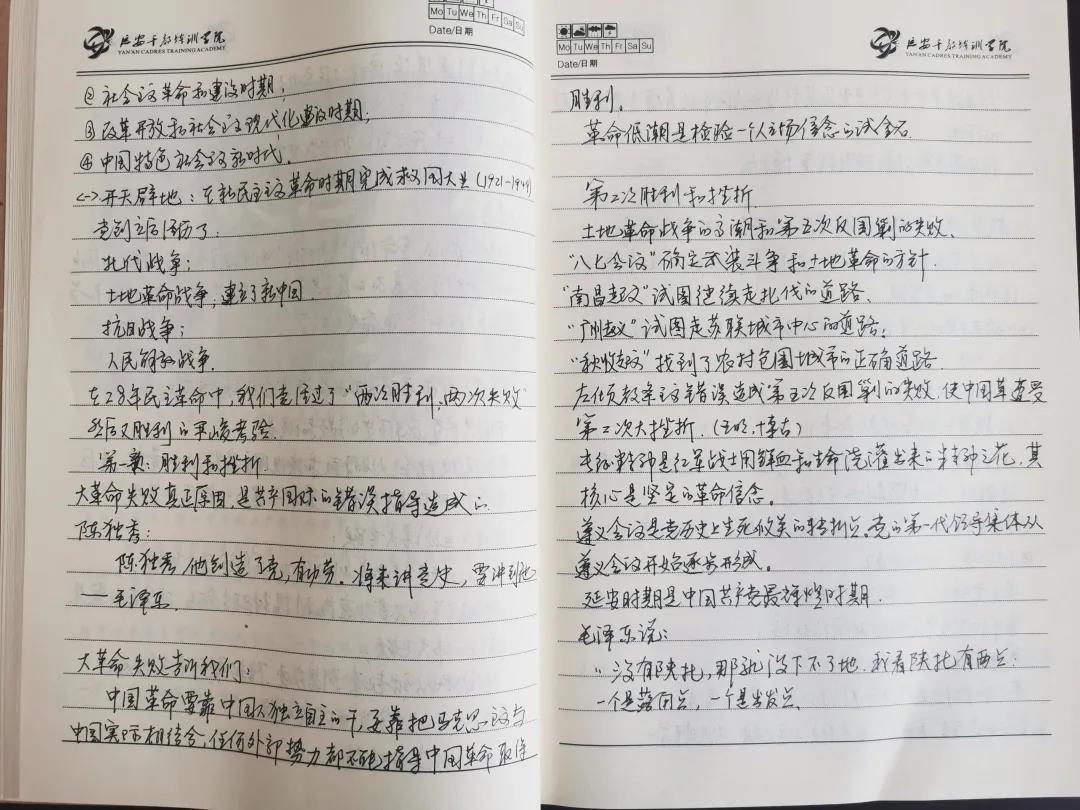 Mo Tu We Th Fr Sa Su
Date/日期
延安干部培训学院
YAN'AN CADRES TRAINING ACADEMY
②社会主义革命和建设时期;
③改革开放和社会主义现代化建设时期;
④中国特色社会主义新时代.
<一>开天辟地:在新民主主义革命时期完成救国大业(1921-1949)
党创立后经历了:
北伐战争;
土地革命战争;建立了新中国.
抗日战争;
人民解放战争.
在28年民主革命中,我们党经过了“两次胜利,两次失败”
然后又胜利的严峻考验.
第一点:胜利和挫折
大革命失败真正原因,是共产国际的错误指导造成的
陈独秀:
陈独秀他创造了党,有功劳。将来讲党史,要讲到他
——毛泽东.
大革命失败告诉我们:
中国革命要靠中国人独立自主的干,要靠把马克思主义与
中国实际相结合,任何外部势力都不能指导中国革命取得
Mo Tu We Th Fr Sa Su
Date/日期
延安干部培训学院
YAN'AN CADRES TRAINING ACADEMY
胜利.
革命低潮是检验一个人立场信念的试金石.
第二次胜利和挫折.
土地革命战争的高潮和第五次反围剿的失败、
“八七会议”确定武装斗争和土地革命的方针.
“南昌起义”试图继续走北伐的道路、
“广州起义”试图走苏联城市中心的道路;
“秋收起义”找到了农村包围城市的正确道路.
左倾教条主义错误造成第五次反围剿的失败.使中国革遭受
第二次大挫折.(王明、博古)
长征精神是红军战士用鲜血和生命浇灌出来的精神之花,其
核心是坚定的革命信念。
遵义会议是党历史上生死攸关的转折点。党的第一代领导集体从
遵义会议开始逐步形成。
延安时期是中国共产党最辉煌时期.
毛泽东说:
“没有陕北,那就没下不了地.我看陕北有两点:
一个是落脚点,一个是出发点、